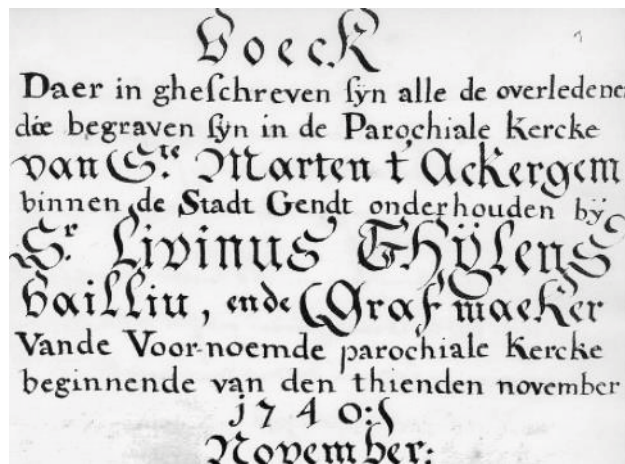 Boeck
Daer in gheſchreven ſÿn alle de overledene
die begraven ſÿn in de Parochiale Kercke
van Ste. Marten t' Ackergem
binnen de Stadt Gendt onderhouden bÿ
Sr. Livinus Thÿlens
bailliu, ende Graf maeker
Vande Voor-noemde parochiale Kercke
beginnende van den thienden november
1740:
November: